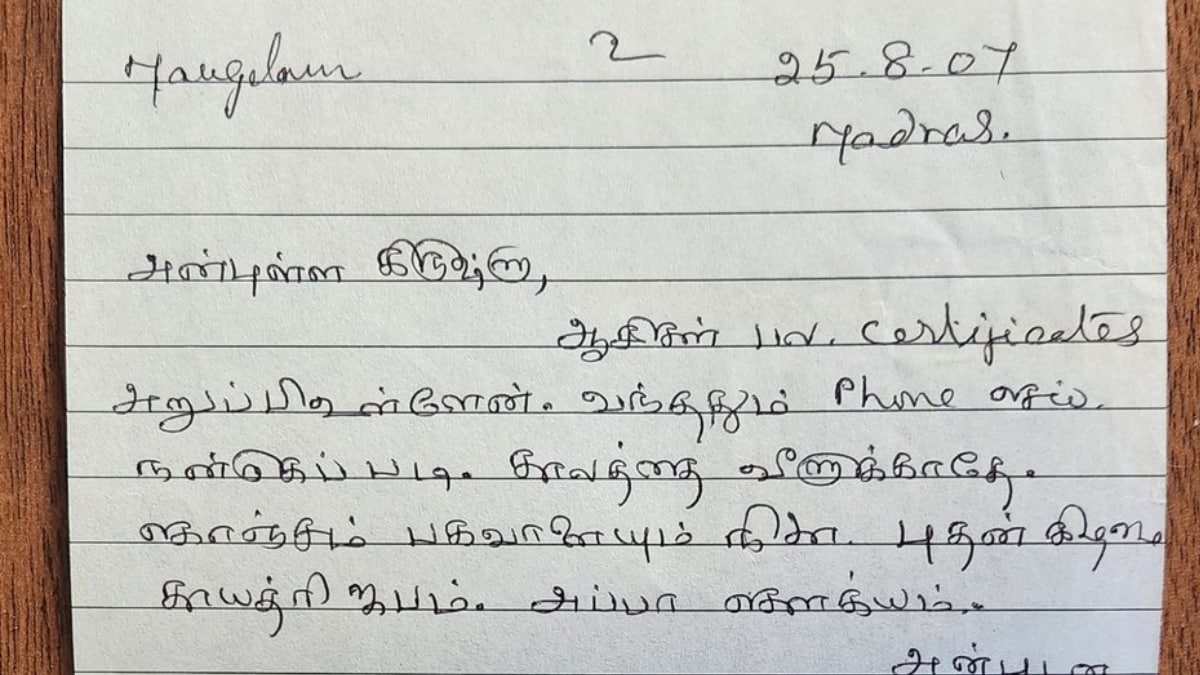 Mangelam 2 25.8.07
Madras.
அன்புள்ள கிருஷ்ணு,
ஆசிகள் பல. Certificates
அனுப்பியுள்ளேன். வந்ததும் Phone செய்.
நன்கெப் படி. காலத்தை வீணாக்காதே.
கொஞ்சம் பகவானையும் நினை. புதன் கிழமை
காயத்ரி ஜபம். அப்பா சௌக்யம்.
அன்புடன்